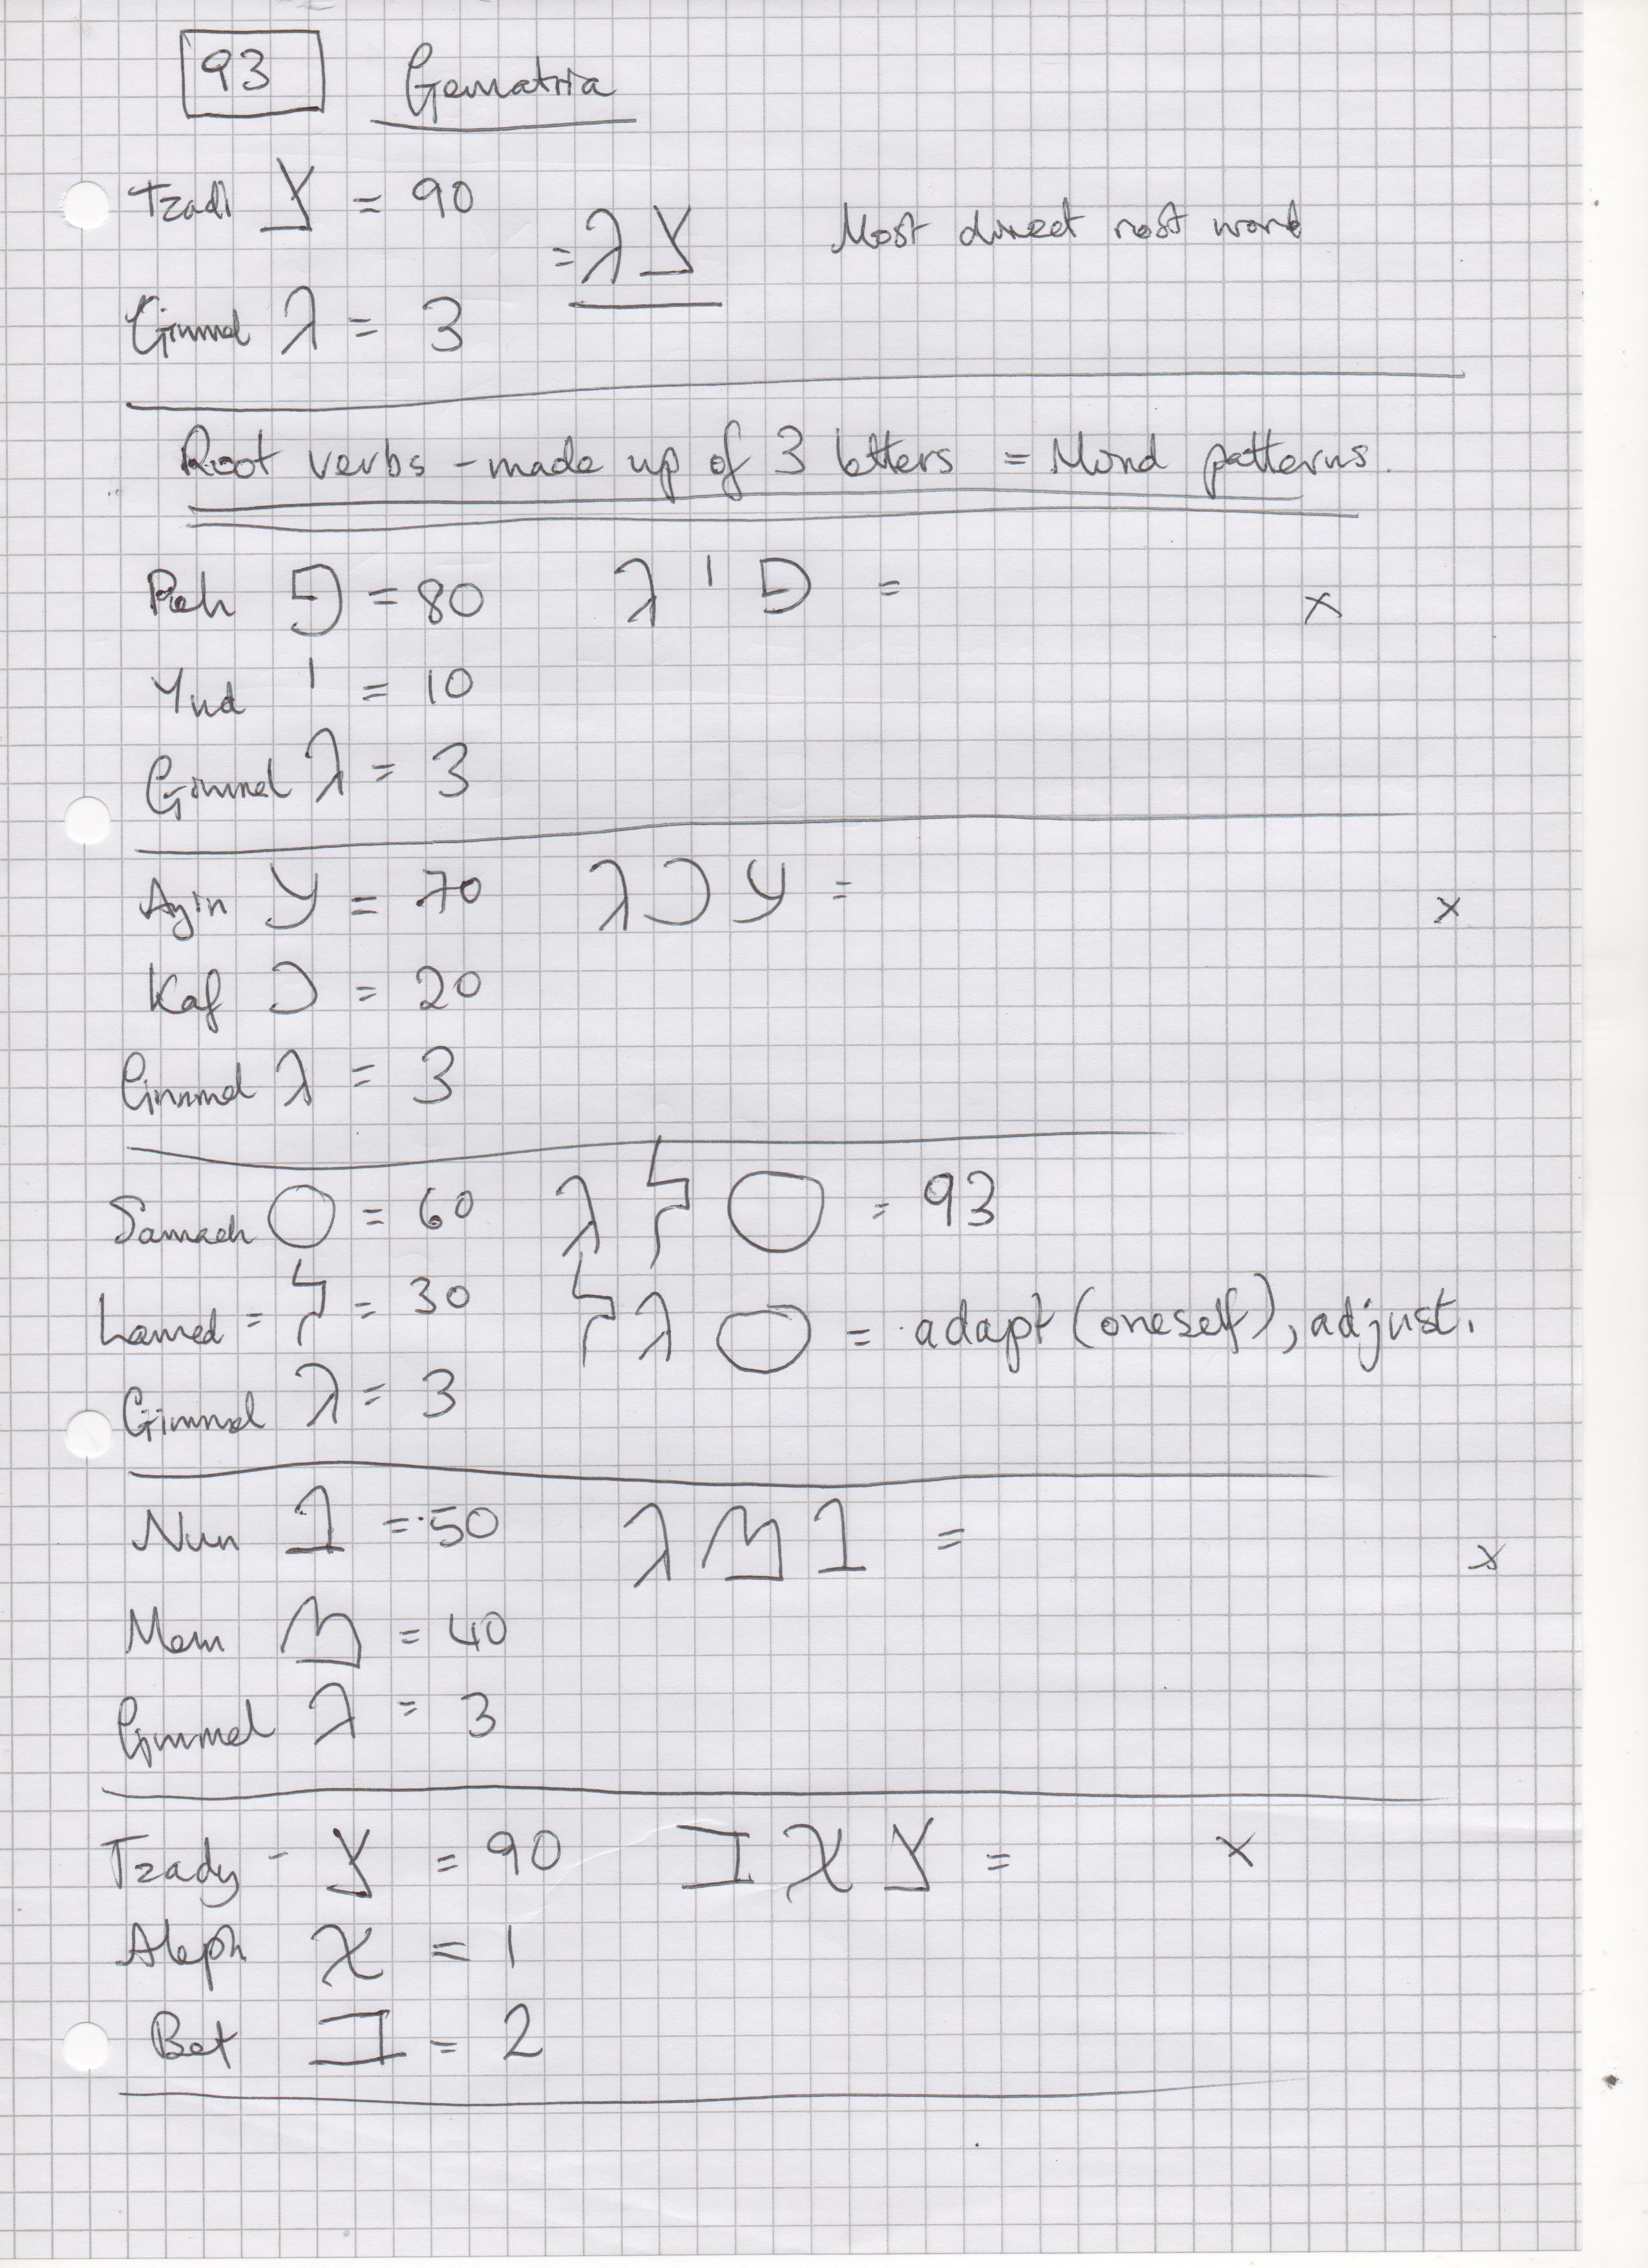 93 Gematria
Tzadi צ = 90
= גצ Most direct root word
Gimmel ג = 3
Root verbs - made up of 3 letters = Mind patterns.
Peh פ = 80 גיפ = x
Yud י = 10
Gimmel ג = 3
Ayin ע = 70 גכע = x
Kaf כ = 20
Gimmel ג = 3
Samach ס = 60 גלס = 93
Lamed = ל = 30 לגס = adapt (oneself), adjust.
Gimmel ג = 3
Nun נ = 50 גמנ = x
Mem מ = 40
Gimmel ג = 3
Tzady - צ = 90 באצ = x
Aleph א = 1
Bet ב = 2